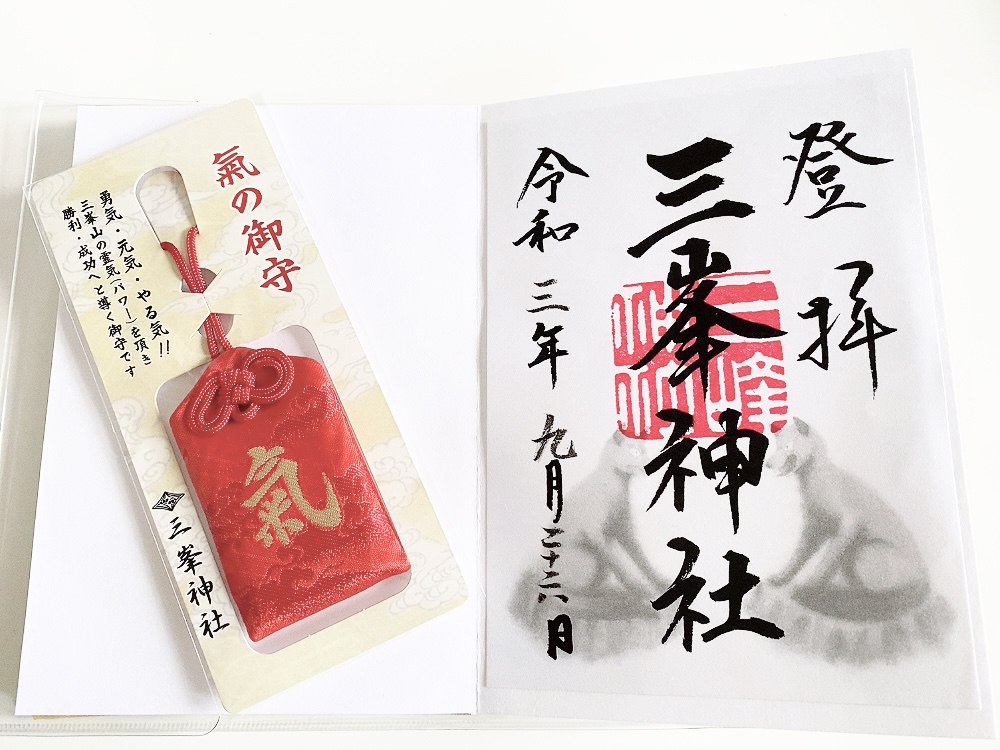 氣の御守
勇気・元気・やる気!!
三峯山の霊気(パワー)を頂き
勝利・成功へと導く御守です
氣
三峯神社
登拝
三峯神社
令和三年九月二十六日